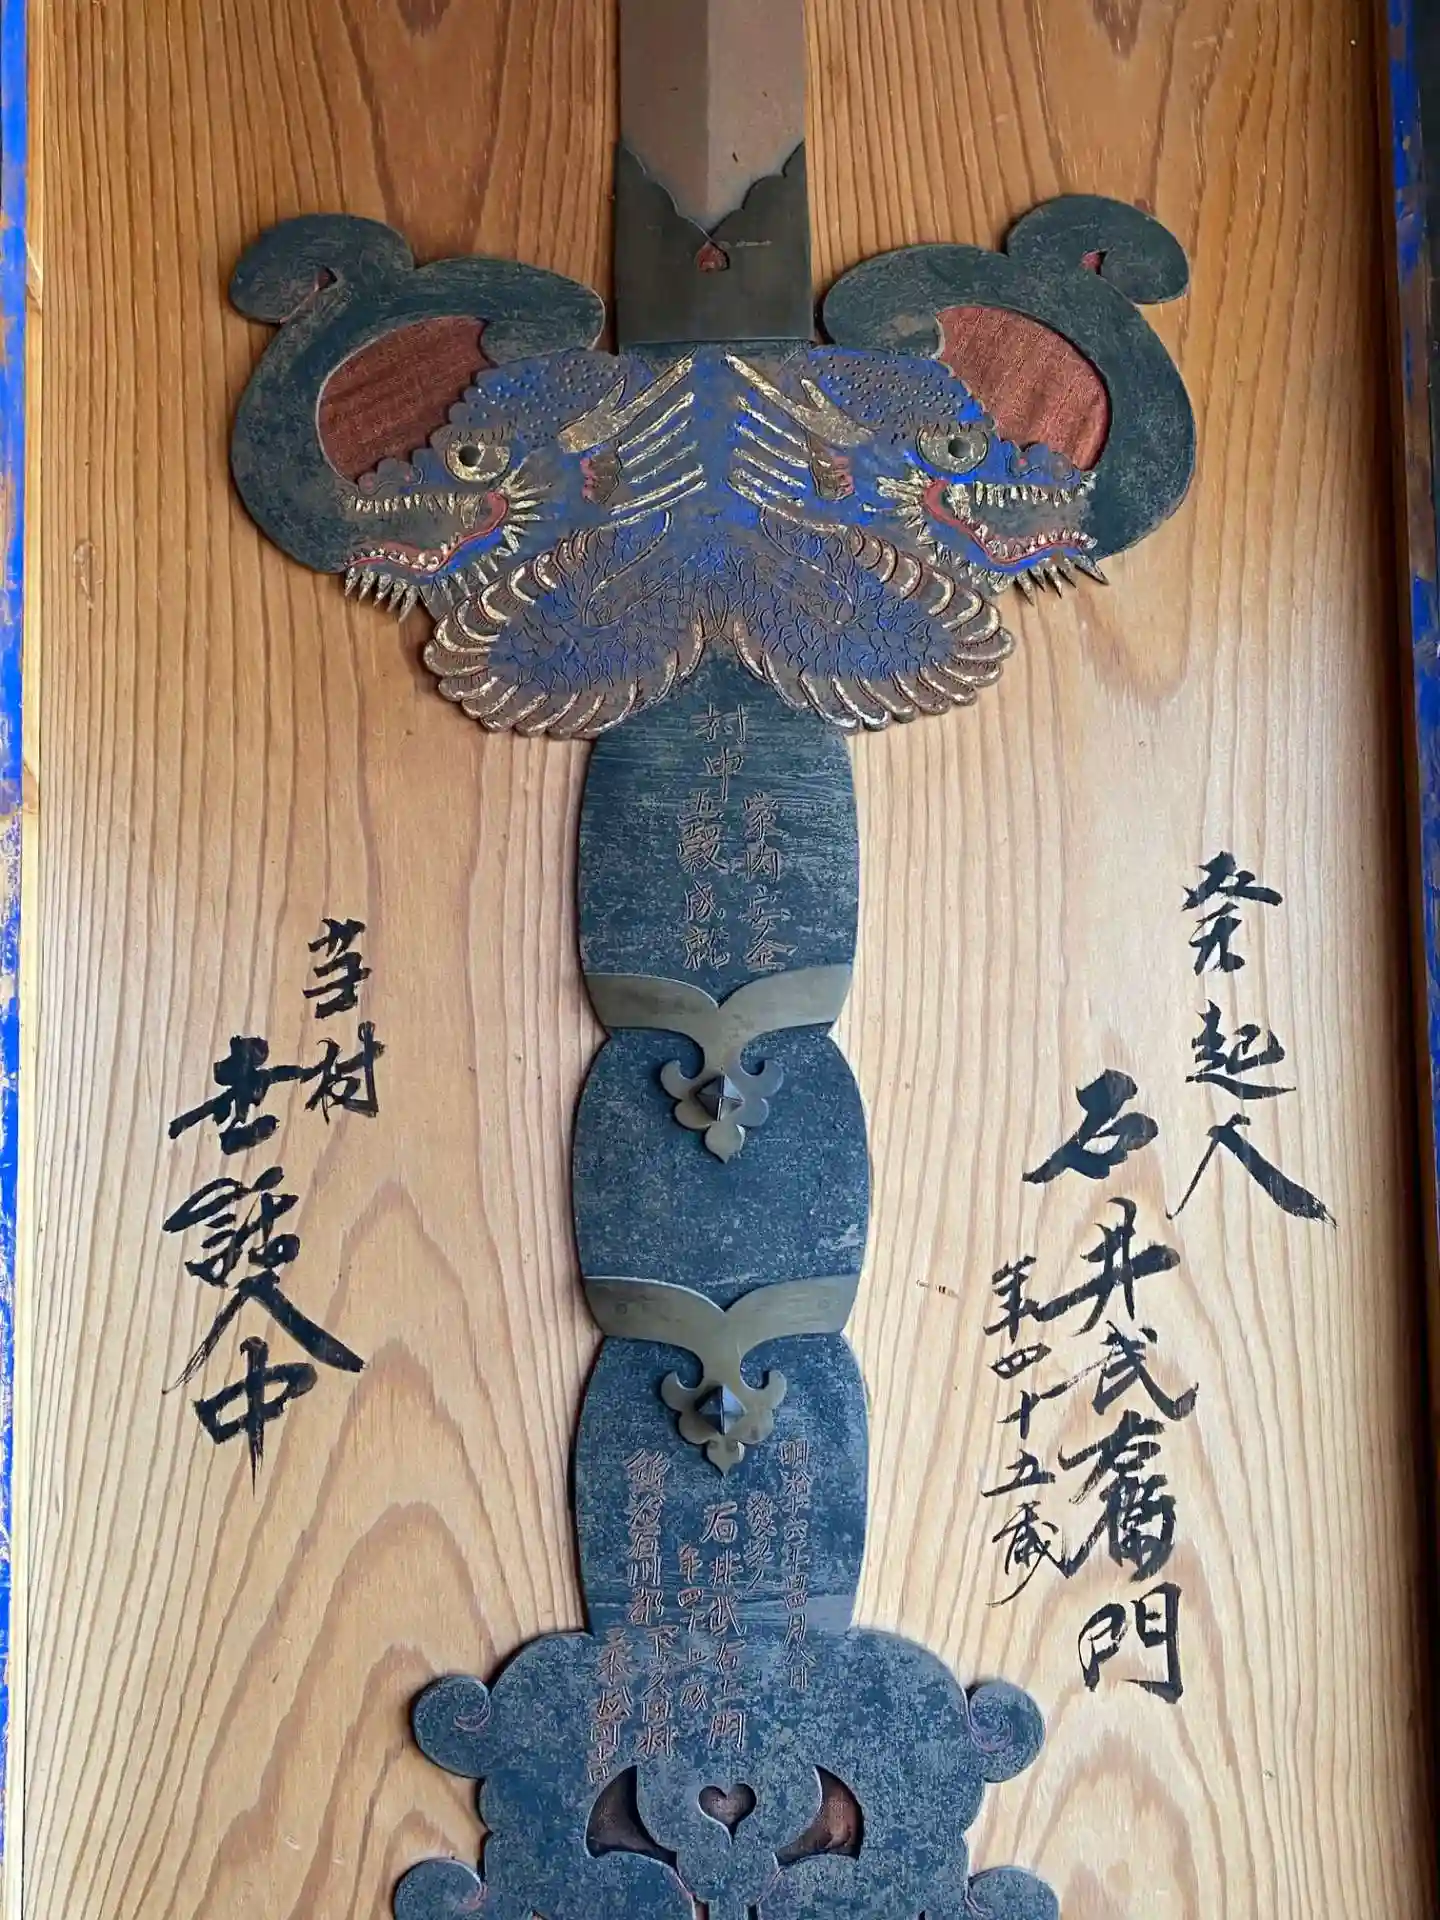 発起人
石井武右衛門
年四十五歳
村中
家内安全
五穀成就
明治十六年四月八日
發起人
石井武右エ門
年四十五歳
下久田村
当村
世話人中